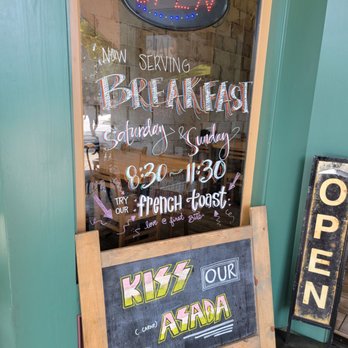 OPEN
NOW SERVING
BREAKFAST
Saturday & Sunday
8:30 ~ 11:30
TRY OUR french toast
love @ first Bite
KISS OUR
(carne) ASADA
OPEN